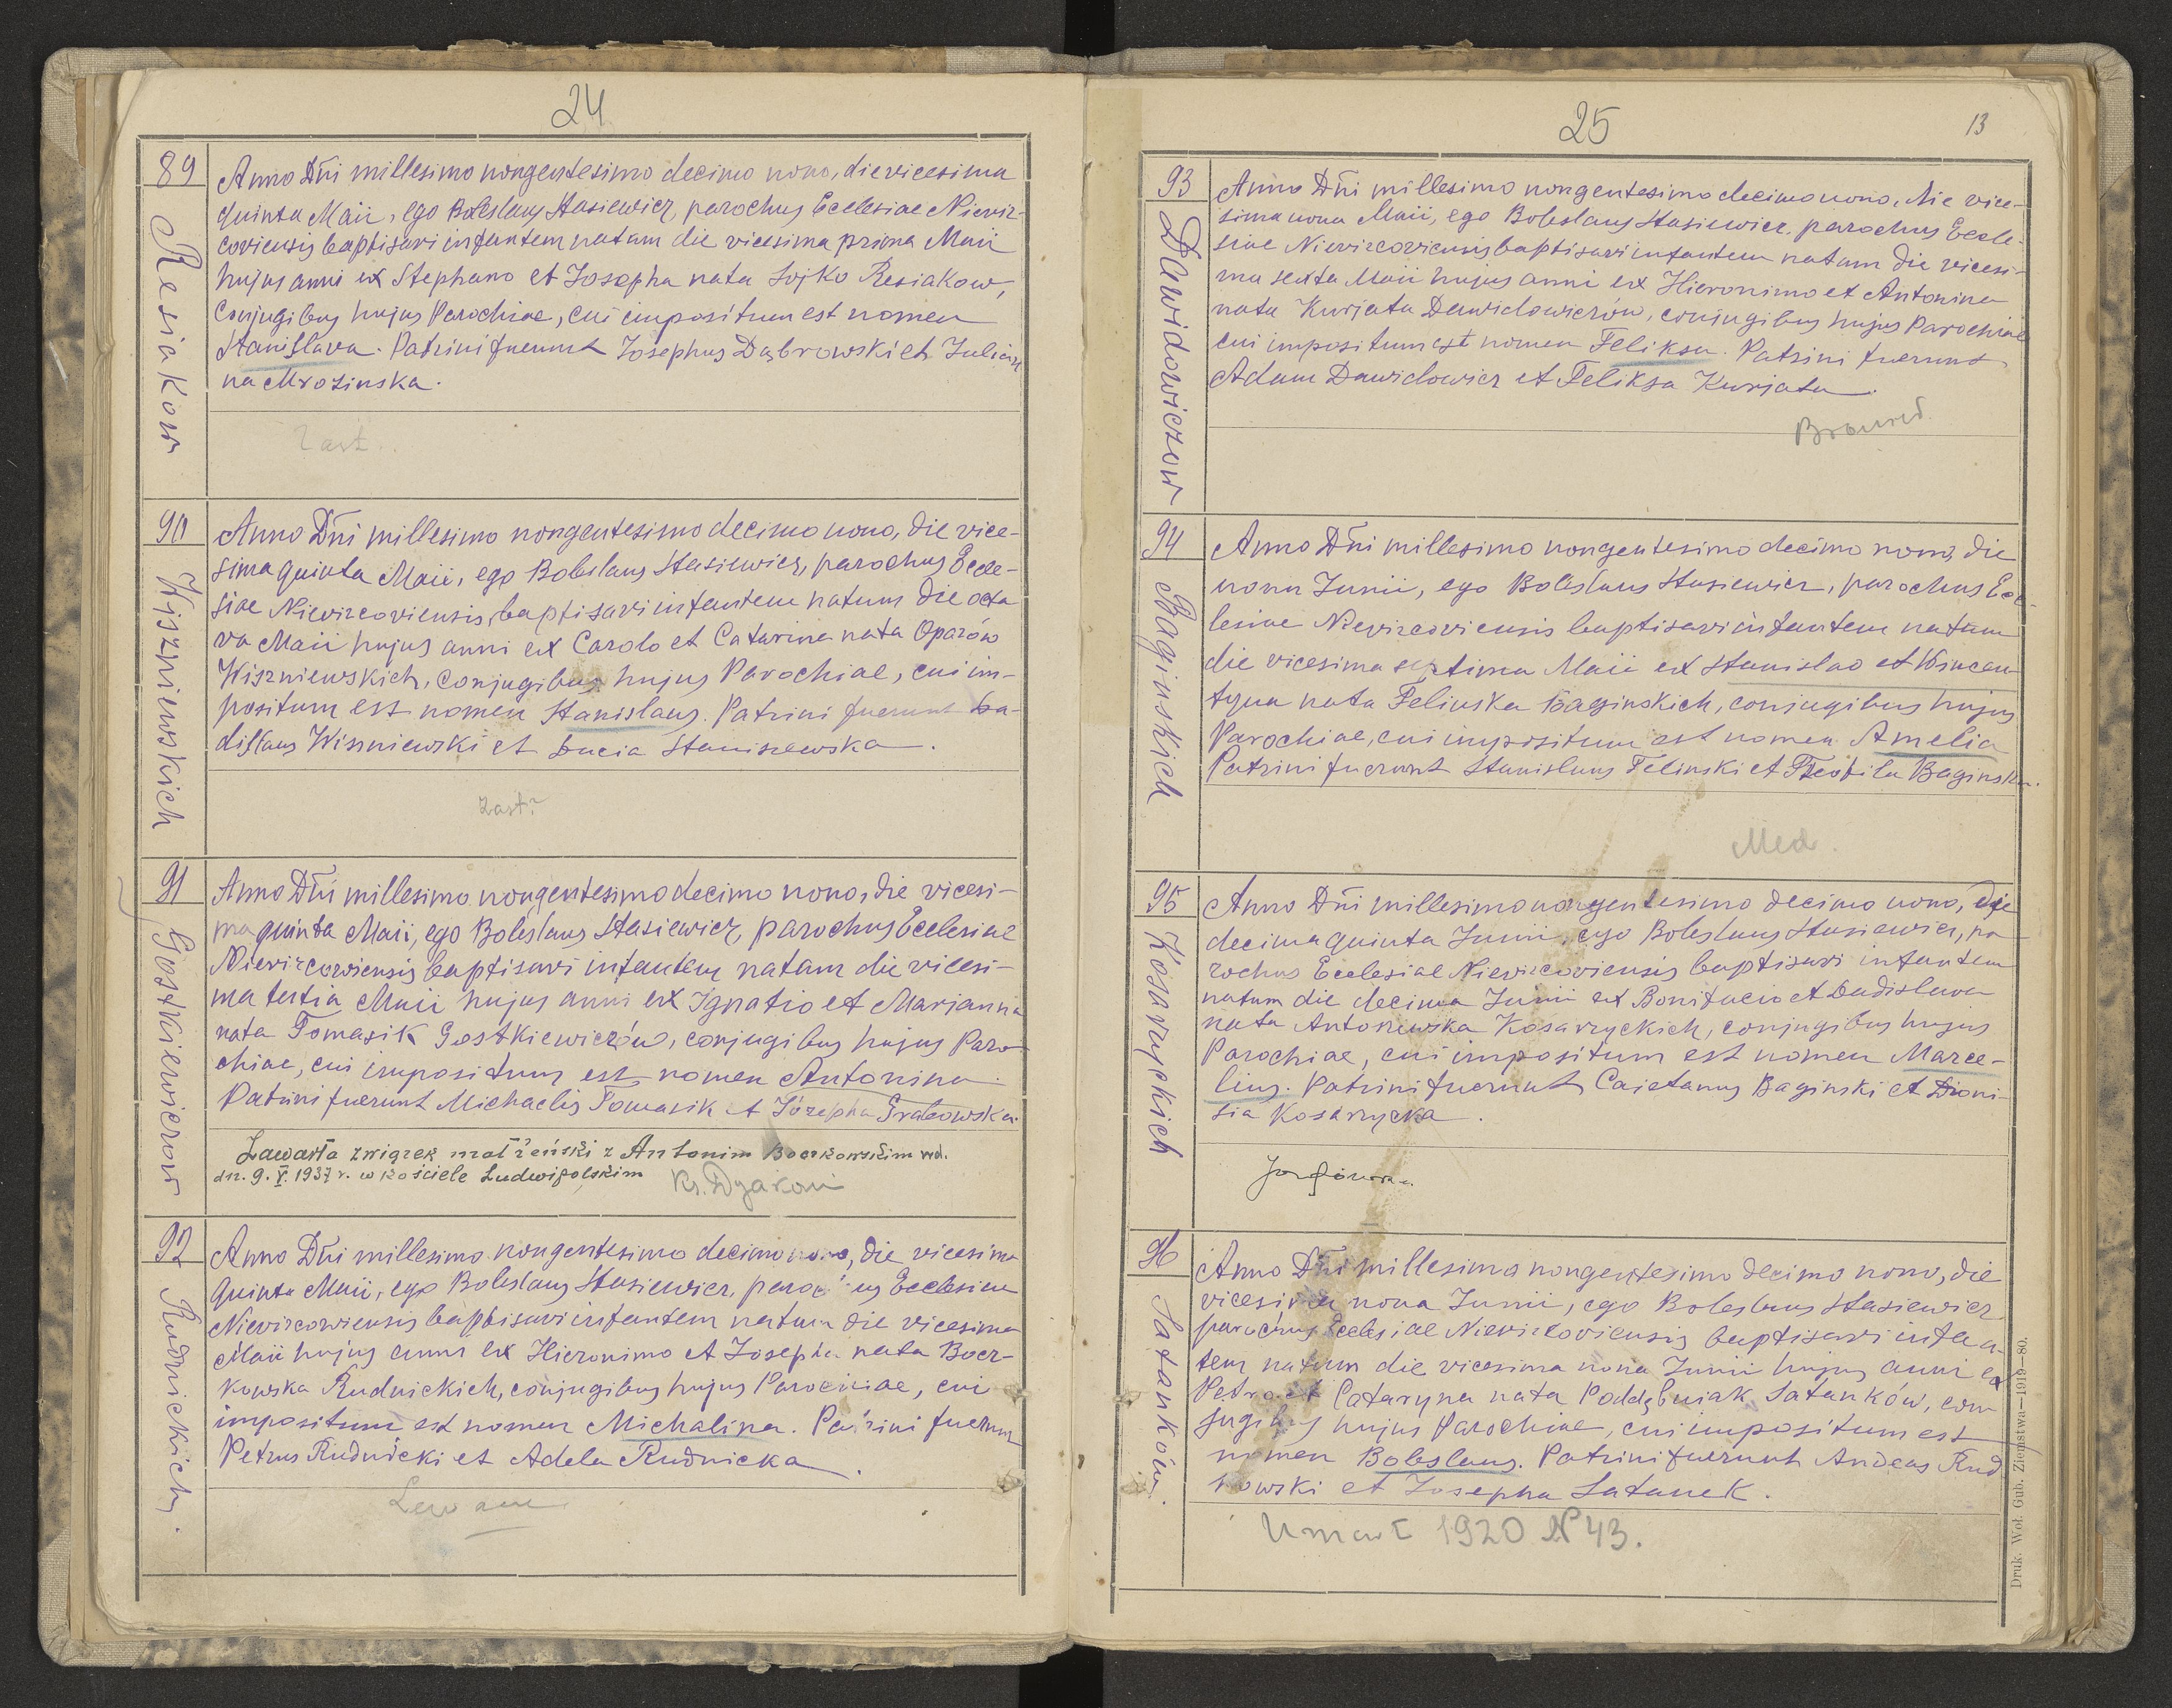 24
89
Resiakow
Anno Dñi millesimo nongentesimo decimo nono, die vicesima
quinta Maii, ego Boleslaus Stasiewicz, parochus Ecclesiae Nievir-
coviensis baptisavi infantem natam die vicesima prima Maii
hujus anni ex Stephano et Josepha nata Sojko Resiakow,
conjugibus hujus Parochiae, cui impositum est nomen
Stanislava. Patrini fuerunt Josephus Dąbrowski et Julian
na Mrozinska.
Zast..
90
Wiszniewskich
Anno Dñi millesimo nongentesimo decimo nono, die vice-
sima quinta Maii, ego Boleslaus Stasiewicz, parochus Eccle-
siae Nievircoviensis, baptisavi infantem natum die octa
va Maii hujus anni ex Carolo et Catarina nata Oparów
Wiszniewskich, conjugibus hujus Parochiae, cui im-
positum est nomen Stanislaus. Patrini fuerunt La-
dislaus Wiszniewski et Lucia Staniszewska.
Zast?
91
Gostkiewiczow
Anno Dñi millesimo nongentesimo decimo nono, die vicesi-
ma quinta Maii, ego Boleslaus Stasiewicz, parochus Ecclesiae
Nievircoviensis baptisavi infantem natam die vicesi-
ma tertia Maii hujus anni ex Ignatio et Marianna
nata Tomasik Gostkiewiczów, conjugibus hujus Paro-
chiae, cui impositum est nomen Antonina.
Patrini fuerunt Michaelis Tomasik et Józepha Grabowska.
Zawarła związek małżeński z Antonim Boczkowskim wd.
dn. 9. V. 1937 r. w kościele Ludwipolskim Ks. Dyakon
92
Rudnickich.
Anno Dñi millesimo nongentesimo decimo nono, die vicesima
quinta Maii, ego Boleslaus Stasiewicz, parochus Ecclesiae
Nievircoviensis baptisavi infantem natam die vicesima
Maii hujus anni ex Hieronimo et Josepha nata Bocz-
kowska Rudnickich, conjugibus hujus Parochiae, cui
impositum est nomen Michalina. Patrini fuerunt
Petrus Rudnicki et Adela Rudnicka.
25
13
93
Dawidowiczow
Anno Dñi millesimo nongentesimo decimo nono, die vice-
sima nona Maii, ego Boleslaus Stasiewicz, parochus Eccle-
siae Nievircoviensis baptisavi infantem natam die vicesi-
ma sexta Maii hujus anni ex Hieronimo et Antonina
nata Kurjata Dawidowiczów, conjugibus hujus Parochiae
cui impositum est nomen Feliksa. Patrini fuerunt
Adam Dawidowicz et Feliksa Kurjata.
94
Baginskich
Anno Dñi millesimo nongentesimo decimo nono, die
nona Junii, ego Boleslaus Stasiewicz, parochus Ecc-
lesiae Nievircoviensis baptisavi infantem natam
die vicesima septima Maii ex Stanislao et Wincen
tyna nata Felinska Baginskich, conjugibus hujus
Parochiae, cui impositum est nomen Amelia
Patrini fuerunt Stanislaus Felinski et Theofila Baginska.
Med.
95
Kosarzyckich
Anno Dñi millesimo nongentesimo decimo nono, die
decima quinta Junii, ego Boleslaus Stasiewicz, pa-
rochus Ecclesiae Nievircoviensis baptisavi infantem
natum die decima Junii ex Bonifacio et Ladislava
nata Antoniewska Kosarzyckich, conjugibus hujus
Parochiae, cui impositum est nomen Marce-
lius. Patrini fuerunt Caietanus Baginski et Dioni-
sia Kosarzycka.
96
Satanków.
Anno Dñi millesimo nongentesimo decimo nono, die
vicesima nona Junii, ego Boleslaus Stasiewicz
parochus Ecclesiae Nievircoviensis baptisavi infan-
tem natum die vicesima nona Junii hujus anni ex
Petro et Cataryna nata Poddębniak Satanków, con
jugibus hujus Parochiae, cui impositum est
nomen Boleslaus. Patrini fuerunt Andeas Rud
kowski et Josepha Satanek.
Umarł 1920 № 43.
Druk. Woł. Gub. Ziemstwa—1919—80.